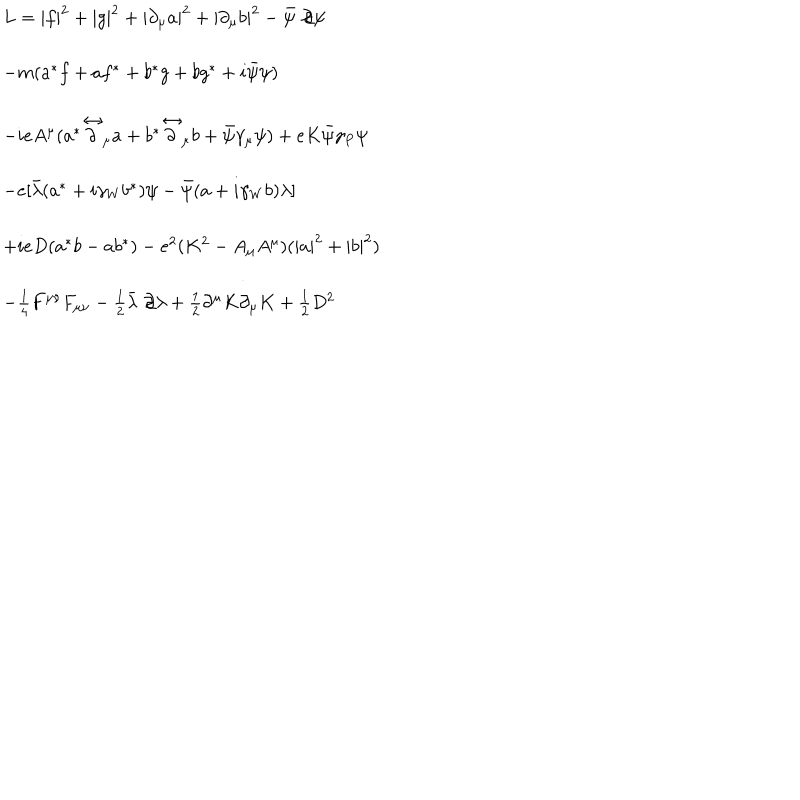 L = |f|² + |g|² + |∂_μ a|² + |∂_μ b|² − ψ̄ ∂̸ψ
−m(a*f + af* + b*g + bg* + iψ̄ψ)
−ieA^μ(a* ∂↔_μ a + b* ∂↔_μ b + ψ̄γ_μψ) + eKψ̄γ_Pψ
−e[λ̄(a* + iγ_W b*)ψ − ψ̄(a + iγ_W b)λ]
+ieD(a*b − ab*) − e²(K² − A_μA^μ)(|a|² + |b|²)
−\frac{1}{4}F^{μν}F_{μν} − \frac{1}{2}λ̄ ∂̸λ + \frac{1}{2}∂^μK∂_μK + \frac{1}{2}D²